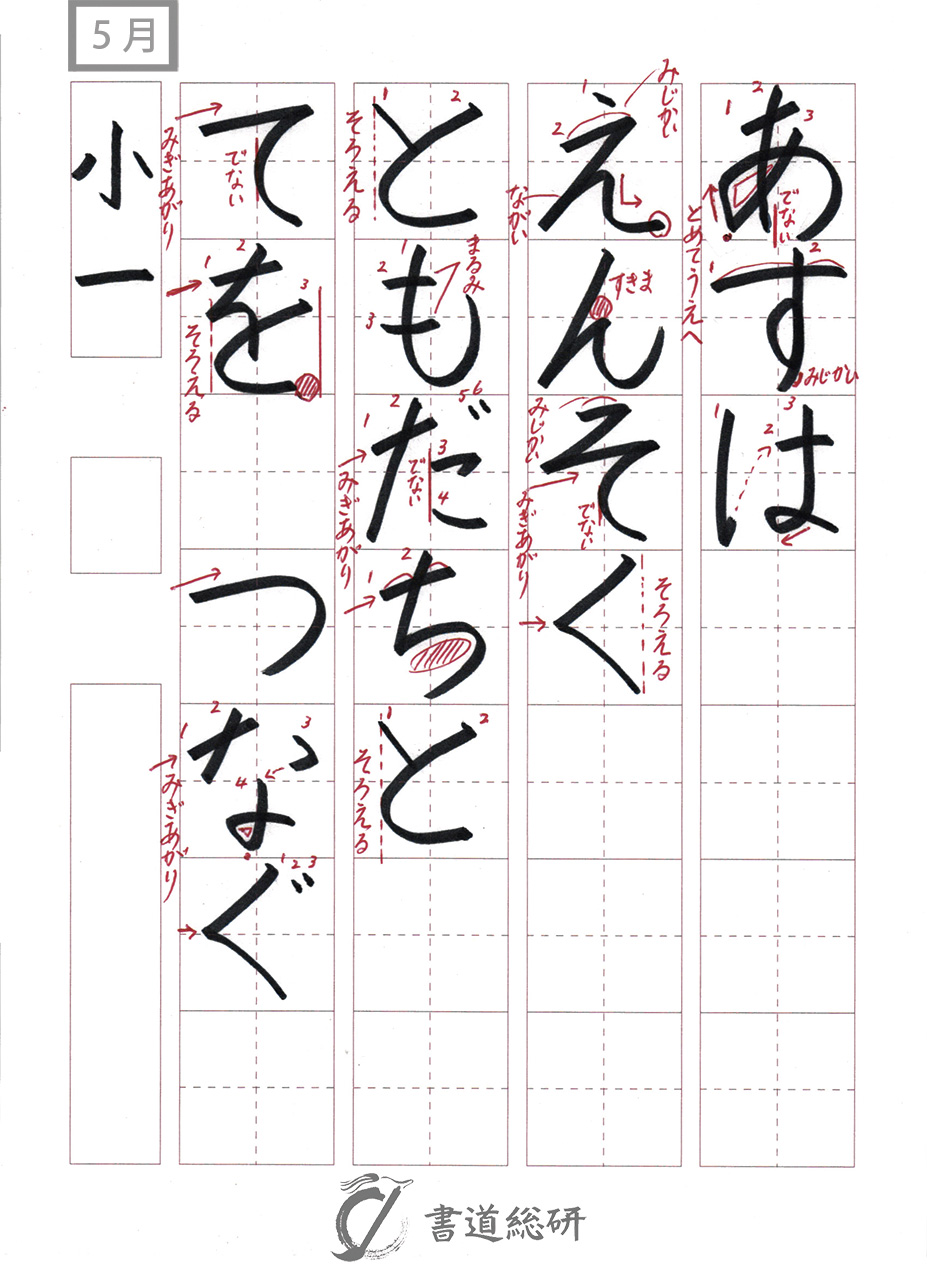 5月
あすは
えんそく
ともだちと
てを つなぐ
小一
1
2
3
でない
とめてうえへ
1
2
みじかい
1
2
3
1
2
みじかい
ながい
すきま
みじかい
みぎあがり
でない
そろえる
1
2
そろえる
1
2
3
まるみ
1
2
3
4
5
6
でない
みぎあがり
1
2
1
2
そろえる
みぎあがり
でない
1
2
3
そろえる
1
2
3
4
みぎあがり
1
2
3
書道総研